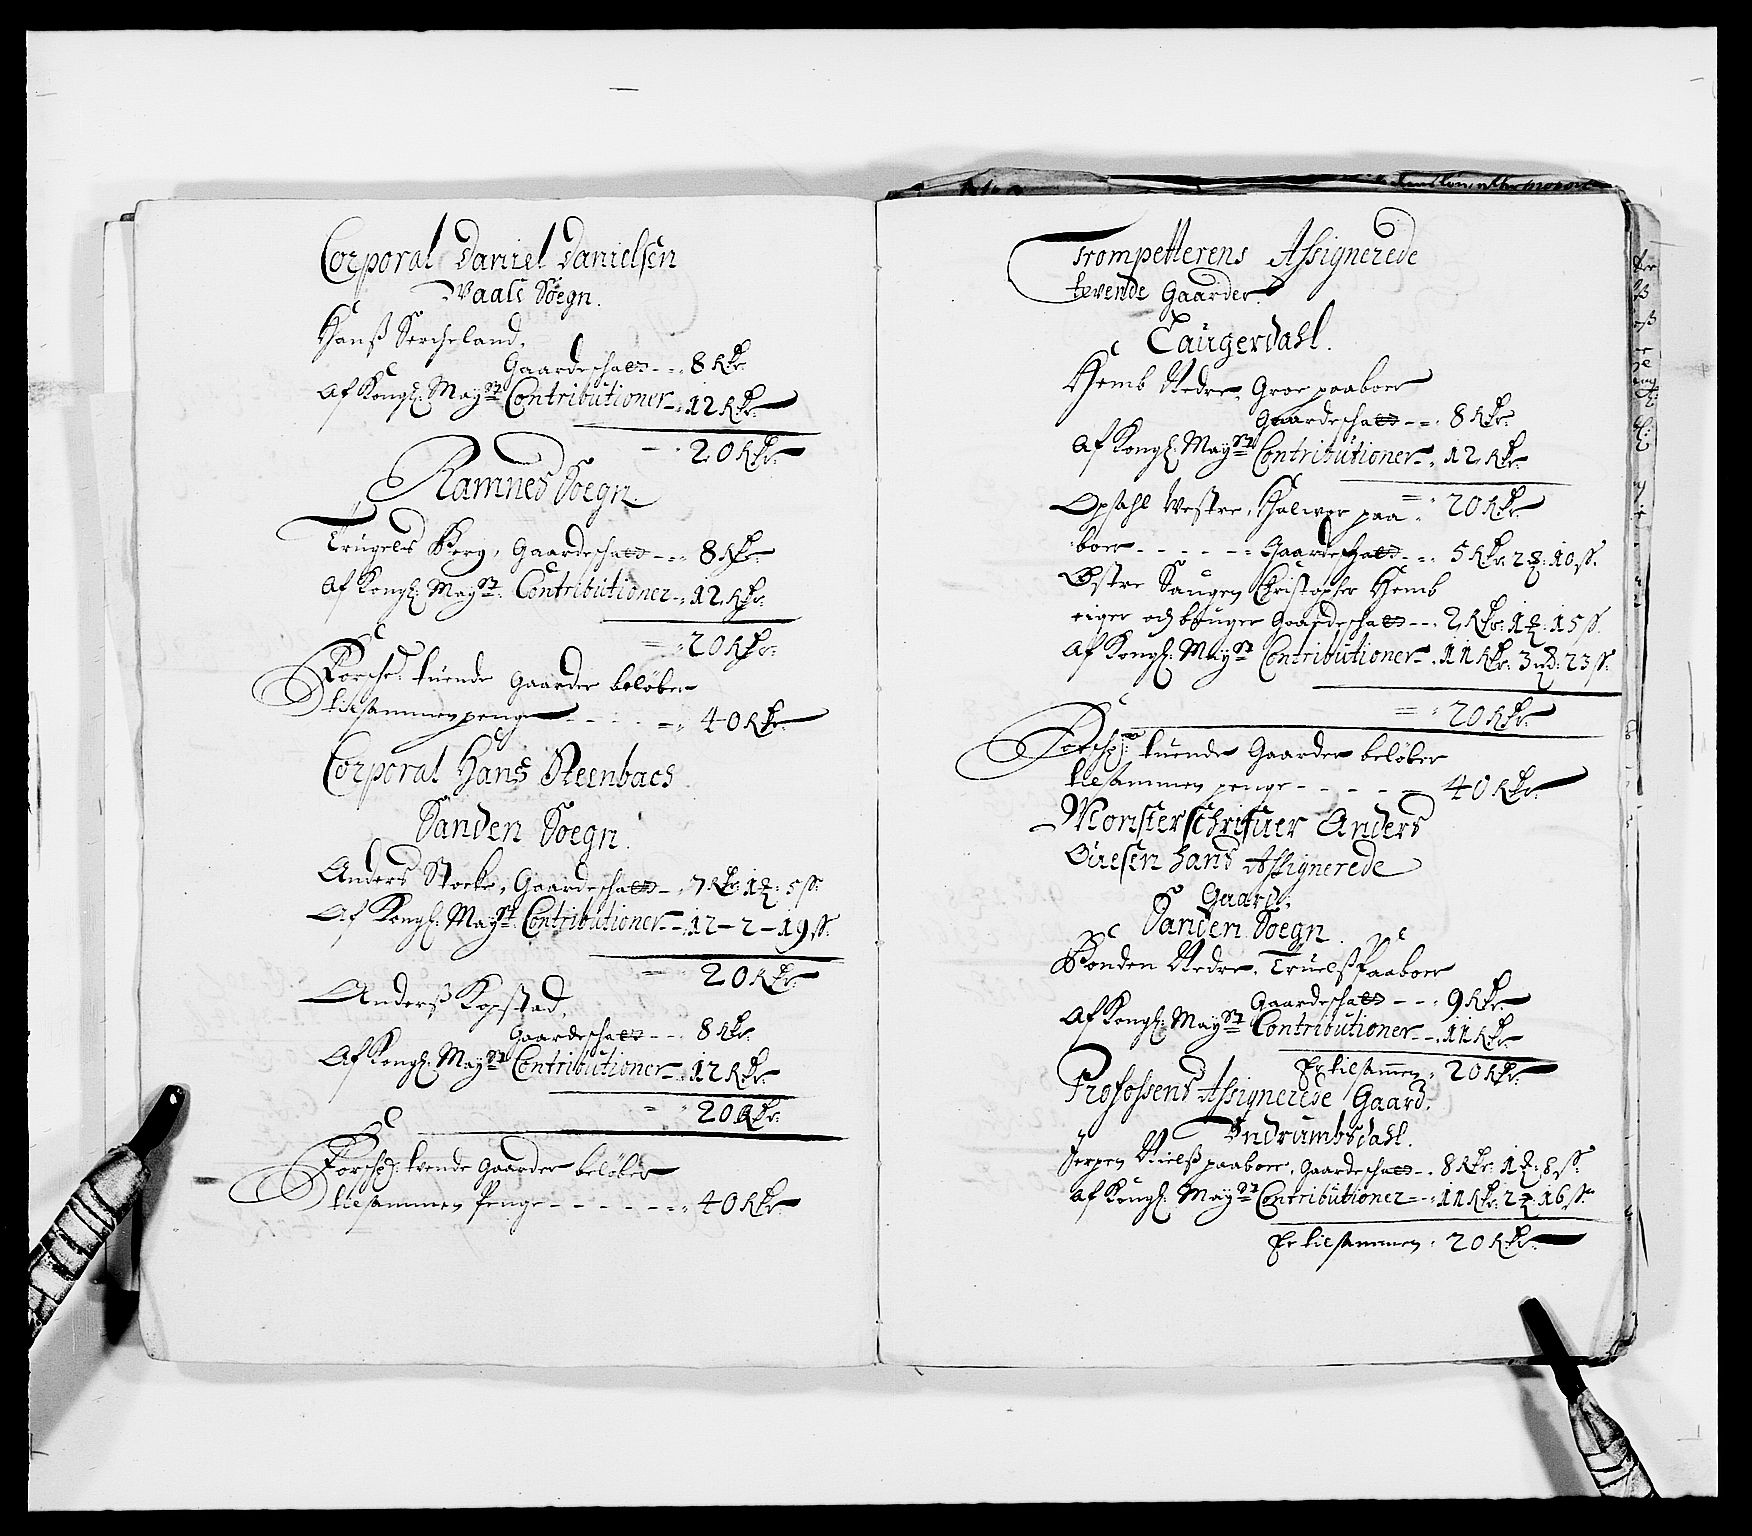 Corporal Daniel Danielsen
Vaale Sogn.
Hanß Sercheland.
Gaardeschatt - - 8 Rdr
Af Kongl: May:st Contributioner - 12 Rdr:
20 Rdr:
Ramnes Soegn.
Trugels Berg, Gaardeschatt - - 8 Rdr:
Af Kongl: May:st Contributioner - 12 Rdr:
20 Rdr:
Forschr: tuende Gaarder beløber
tilsammen penge - - - - 40 Rdr:
Corporal Hans Steenbach
Sanden Soegn.
Anders Stocke, Gaardeschatt - 7 Rdr: 1 : 5 s:
Af Kongl: May:st Contributioner - 12 - 2 - 19 s.
20 Rdr:
Anderß Kopstad,
Gaardeschatt - - 8 Rdr.
Af Kongl: May:st Contributioner - 12 Rdr:
20 Rdr:
Forschr: tvende Gaarder beløber
tilsammen Penge - - - - - - 40 Rdr
Trompetterens Assignerede
tvende Gaarder.
Laugerdahl.
Hemb Nedre, Groe paaboer
Gaardeschatt - - 8 Rdr:
Af Kongl: May:st Contributioner - 12 Rdr:
20 Rdr:
Opsahl Westre, Halwor paa-
boer - - - - - Gaardeschatt - - 5 Rdr: 2 : 10 s.
Østre Saugen Christopher Hemb
eiger och bruger Gaardeschatt - - 2 Rdr: 1 : 15 s.
Af Kongl: May:st Contributioner - 11 Rdr: 3 : 23 s.
20 Rdr:
Forschr: tuende Gaarder beløber
tilsammen penge - - - - - 40 Rdr:
Mønsterschrifuer Anders
Olesen hans Assignerede
Gaard.
Sanden Soegn.
Bonden Nedre, Truelß Paaboer
Gaardeschatt - - 9 Rdr:
Af Kongl: May:st Contributioner - 11 Rdr:
Er tilsammen 20 Rdr:
Profossens Assignerede Gaard.
Undrumbsdahl.
Jerpen Nielß paaboer, Gaardeschatt - 8 Rdr: 1 : 8 s:
Af Kongl: May:st Contributioner - 11 Rdr: 2 : 16 s:
Er tilsammen 20 Rdr: